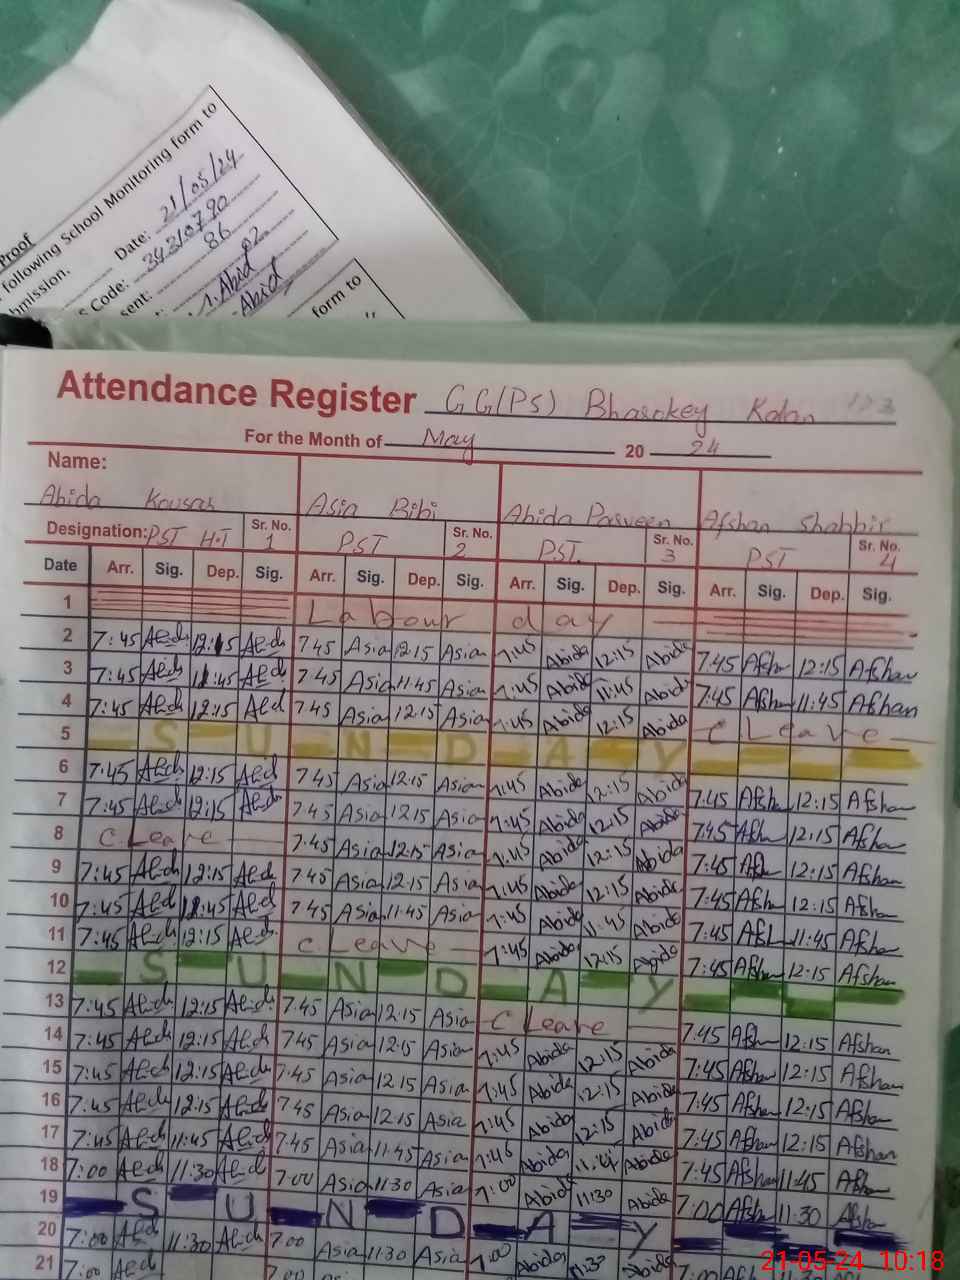 Proof
following School Monitoring form to
bmission.
Date: 21/05/24
Code: 34310790
sent: 86
02
1. Abid
Abid
form to
Attendance Register GG(PS) Bhasokey Kalan 123
For the Month of May 2024
Name:
Abida Kousar Asia Bibi Abida Parveen Afshan Shabbir
Designation: PST H.T Sr. No. 1 PST Sr. No. 2 PST. Sr. No. 3 PST Sr. No. 4
Date Arr. Sig. Dep. Sig. Arr. Sig. Dep. Sig. Arr. Sig. Dep. Sig. Arr. Sig. Dep. Sig.
1 Labour day
2 7:45 12:15 7 45 Asia 12:15 Asia 7:45 Abida 12:15 Abida 7:45 Afshan 12:15 Afshan
3 7:45 11:45 7 45 Asia 11:45 Asia 7:45 Abida 11:45 Abida 7:45 Afshan 11:45 Afshan
4 7:45 12:15 7 45 Asia 12:15 Asia 7:45 Abida 12:15 Abida C Leave
5 SUNDAY
6 7:45 12:15 7 45 Asia 12:15 Asia 7:45 Abida 12:15 Abida 7:45 Afshan 12:15 Afshan
7 7:45 12:15 7 45 Asia 12:15 Asia 7:45 Abida 12:15 Abida 7:45 12:15 Afshan
8 C Leave 7:45 Asia 12:15 Asia 7:45 Abida 12:15 Abida 7:45 12:15 Afshan
9 7:45 12:15 7 45 Asia 12:15 Asia 7:45 Abida 12:15 Abida 7:45 Afshan 12:15 Afshan
10 7:45 11:45 7 45 Asia 11:45 Asia 7:45 Abida 11:45 Abida 7:45 11:45 Afshan
11 7:45 12:15 C Leave 7:45 Abida 12:15 Abida 7:45 Afshan 12:15 Afshan
12 SUNDAY
13 7:45 12:15 7:45 Asia 12:15 Asia C Leave 7:45 Afshan 12:15 Afshan
14 7:45 12:15 7 45 Asia 12:15 Asia 7:45 Abida 12:15 Abida 7:45 Afshan 12:15 Afshan
15 7:45 12:15 7:45 Asia 12:15 Asia 7:45 Abida 12:15 Abida 7:45 Afshan 12:15 Afshan
16 7:45 12:15 7 45 Asia 12:15 Asia 7:45 Abida 12:15 Abida 7:45 Afshan 12:15 Afshan
17 7:45 11:45 7:45 Asia 11:45 Asia 7:45 Abida Abida 7:45 Afshan 11:45 Afshan
18 7:00 11:30 7:00 Asia 11:30 Asia 7:00 Abida 11:30 Abida 7:00 Afshan 11:30 Afshan
19 SUNDAY
20 7:00 11:30 7:00 Asia 11:30 Asia 7:00 Abida 11:30 Abida
21 7:00
21-05-24 10:18